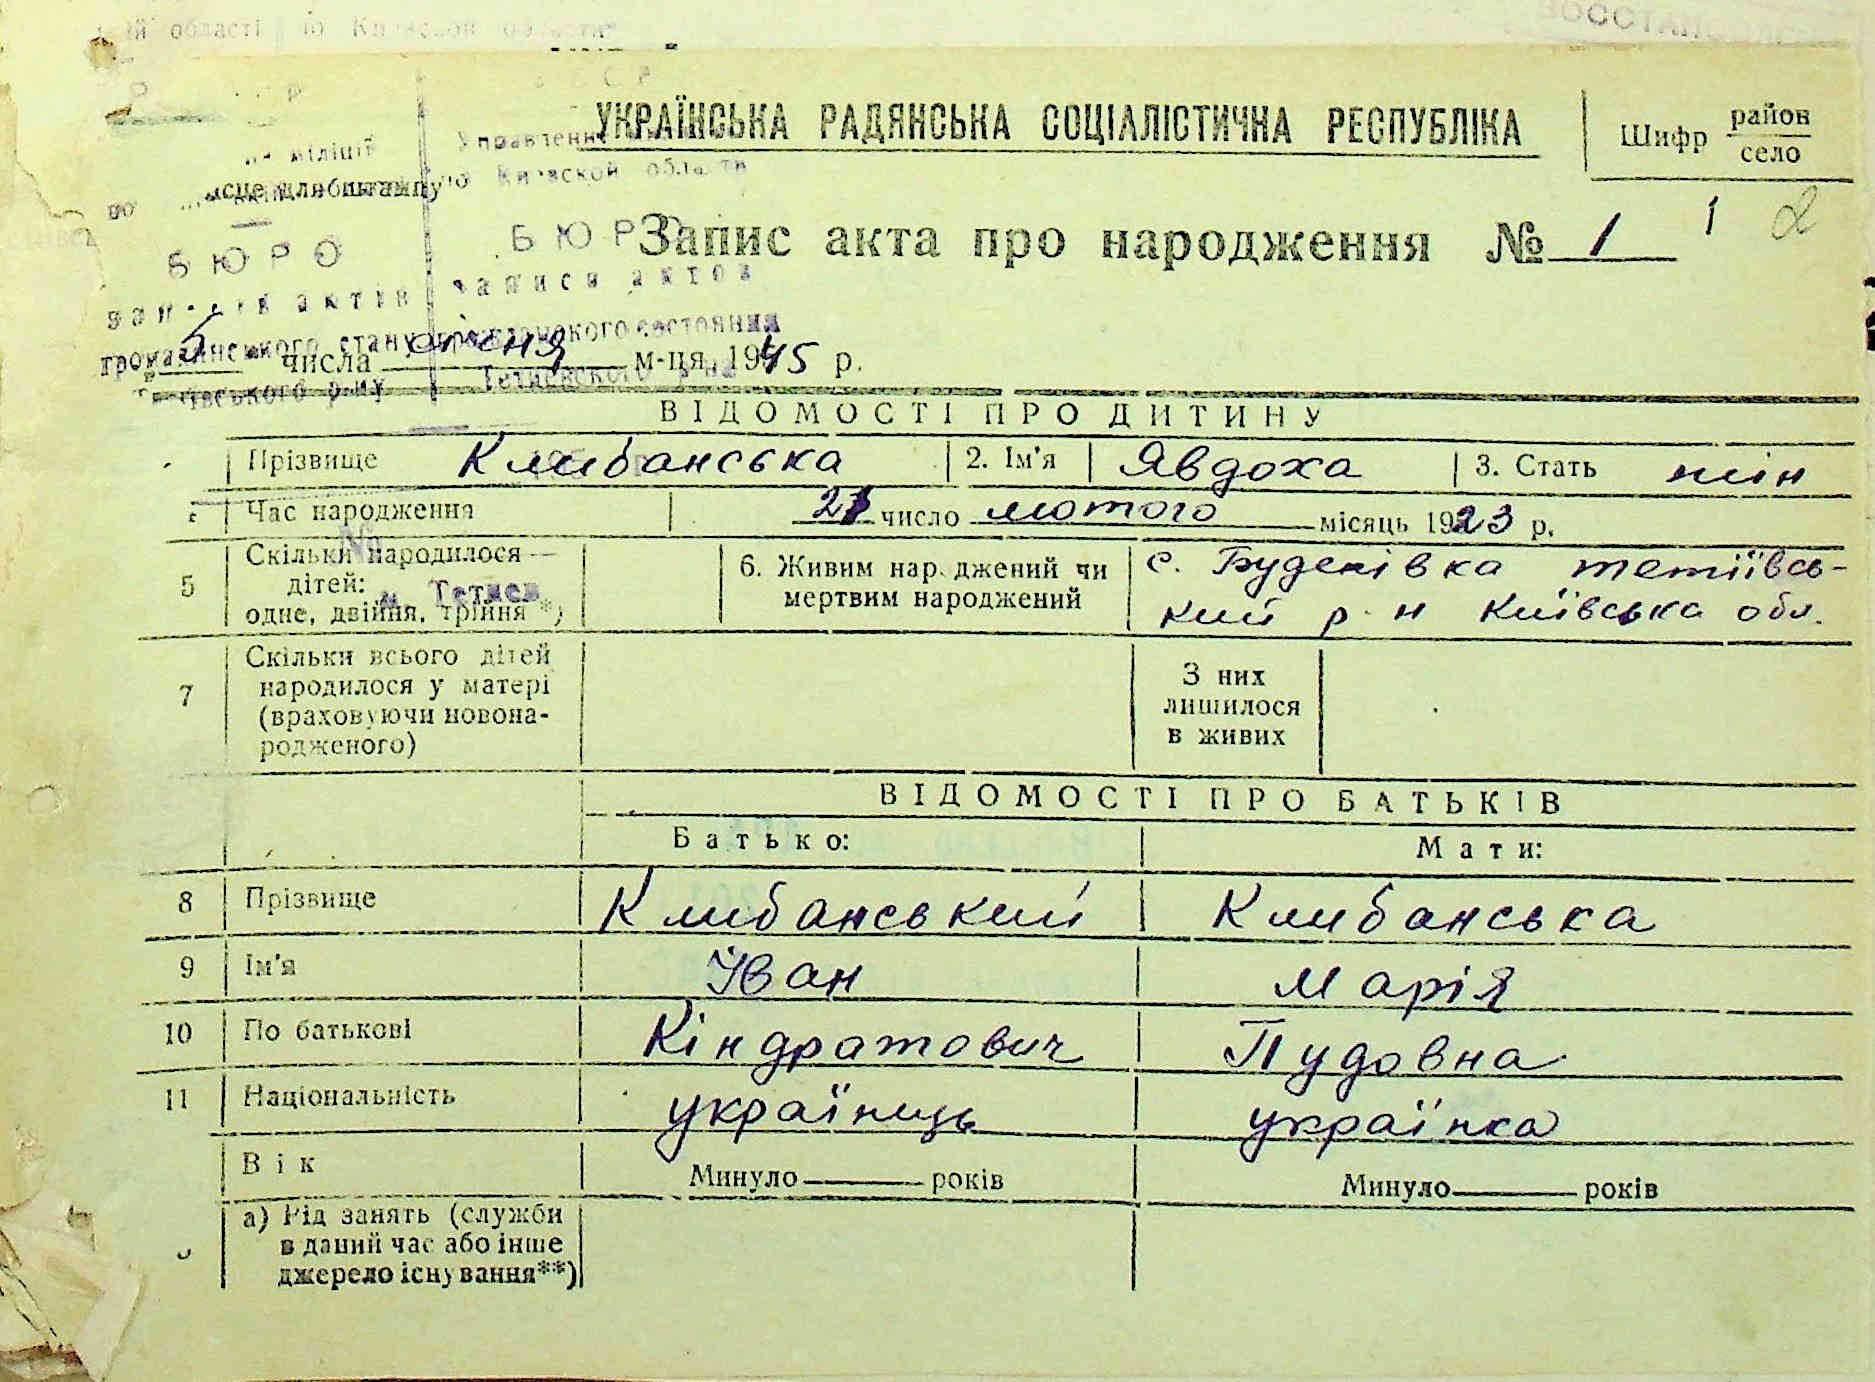 ій області по Київской области
ВОССТАНОВЛЕН
УКРАЇНСЬКА РАДЯНСЬКА СОЦІАЛІСТИЧНА РЕСПУБЛІКА
Шифр район
село
міліції Управление
Місце для штампу Киевской области
Запис акта про народження № 1 1 2
БЮРО БЮРО
записів актів записи актов
громадянського стану гражданского состояния
5 числа січня м-ця 1945 р.
Тетиевского р-на
ВІДОМОСТІ ПРО ДИТИНУ
Прізвище Клибанська 2. Ім'я Явдоха 3. Стать жін
Час народження 21 число лютого місяць 1923 р.
5 Скільки народилося
дітей:
одне, двійня, трійня *)
м. Тетиев
6. Живим народжений чи
мертвим народжений
с. Буденівка тетіївсь-
кий р-н Київська обл.
7 Скільки всього дітей
народилося у матері
(враховуючи новона-
родженого)
З них
лишилося
в живих
ВІДОМОСТІ ПРО БАТЬКІВ
Батько: Мати:
8 Прізвище Клибанський Клибанська
9 Ім'я Іван Марія
10 По батькові Кіндратович Пудовна
11 Національність українць українка
Вік Минуло років Минуло років
а) Рід занять (служби
в даний час або інше
джерело існування**)